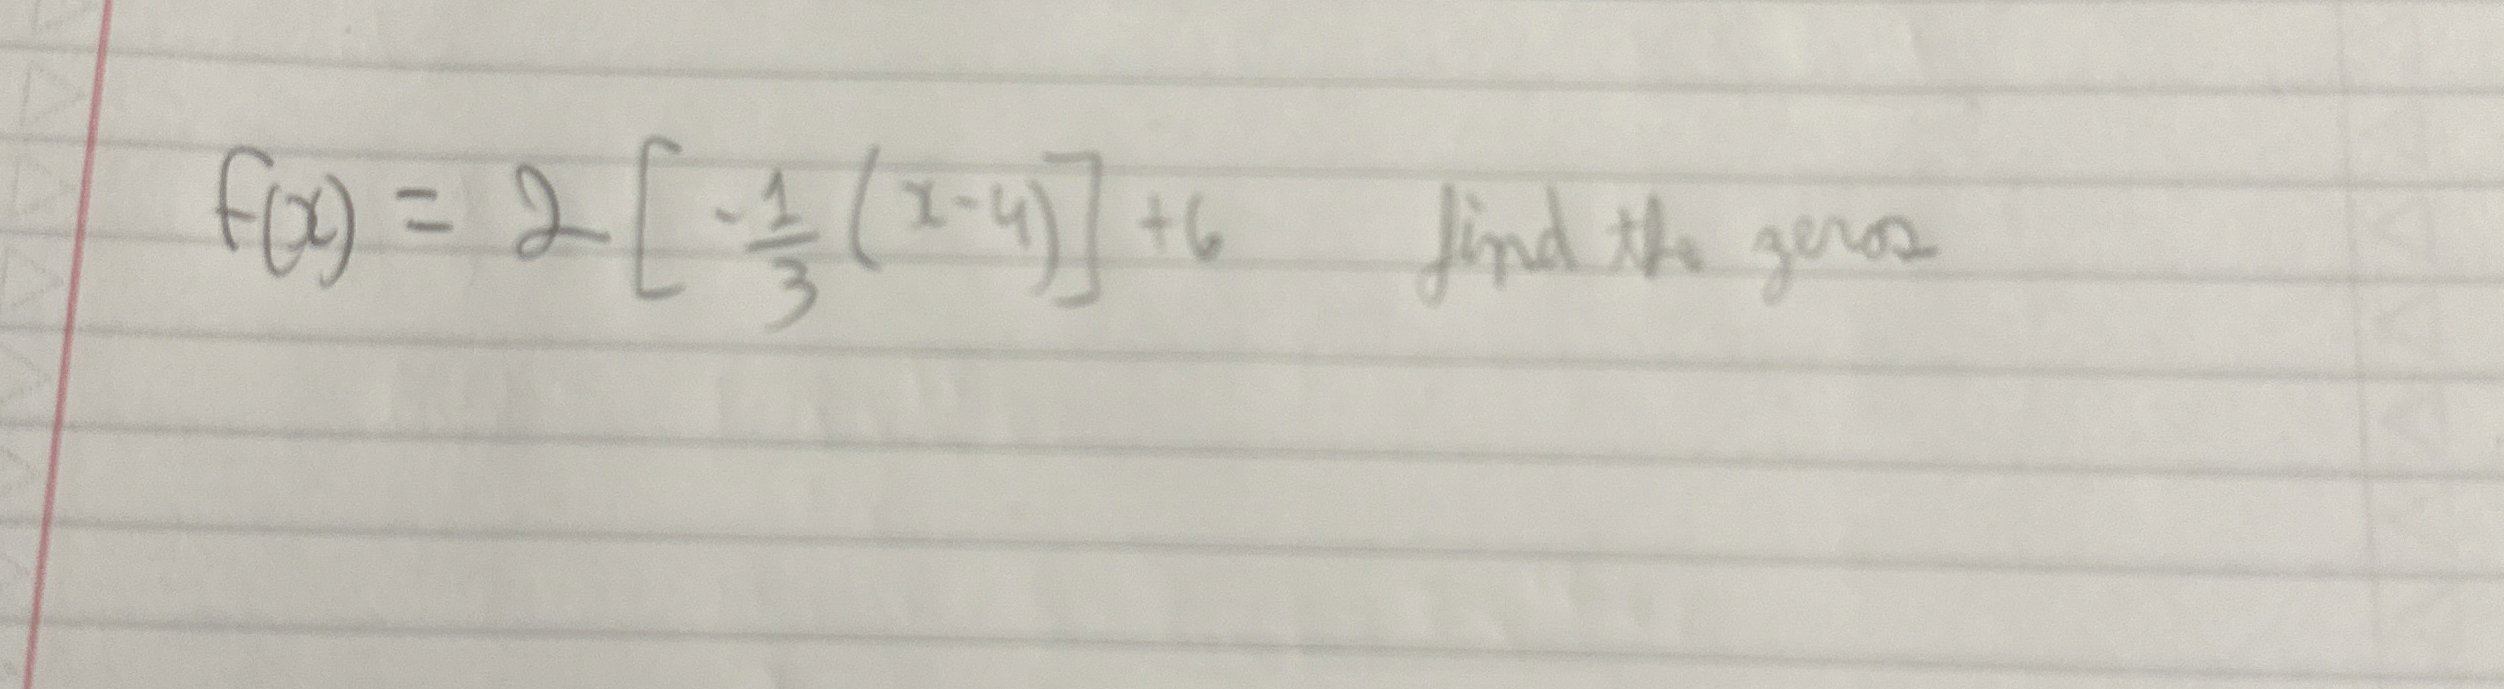 f(x) = 2 [-1/3 (x-4)] +6 find the zeros